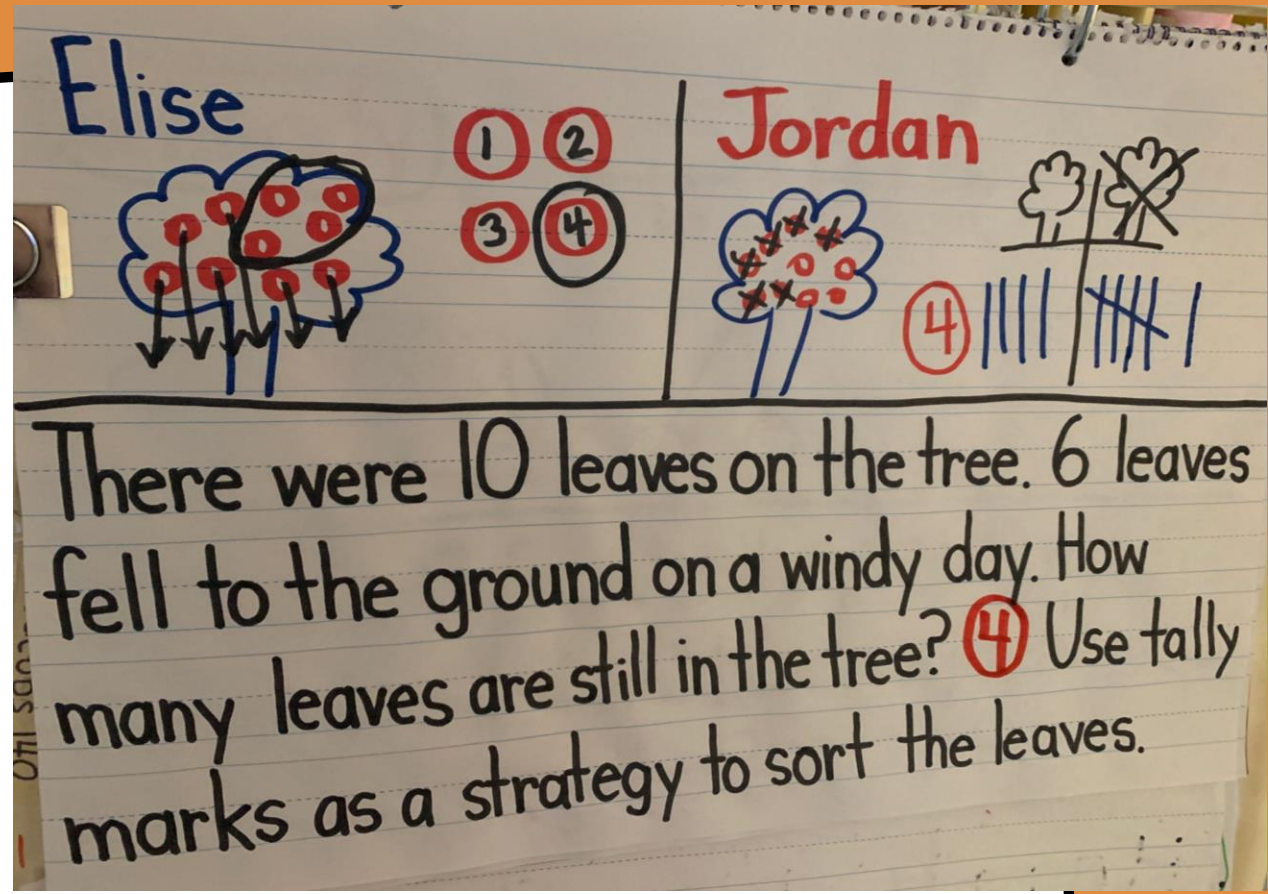 Elise
1 2
3 4
Jordan
4
There were 10 leaves on the tree. 6 leaves
fell to the ground on a windy day. How
many leaves are still in the tree? 4 Use tally
marks as a strategy to sort the leaves.